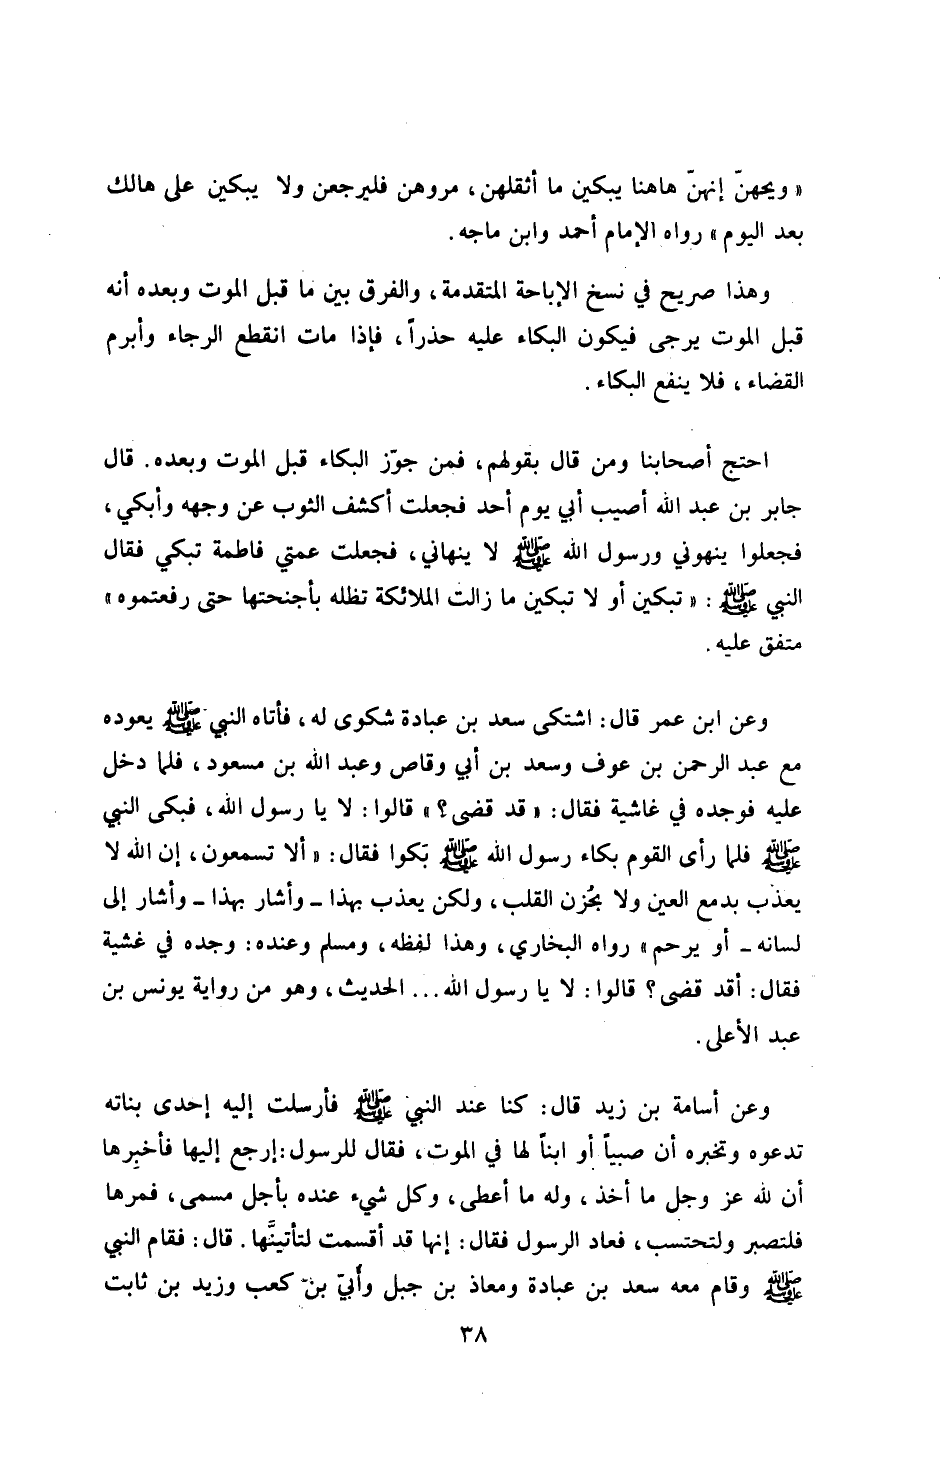 « ويحهنّ إنهنّ هاهنا يبكين ما أثقلهن، مروهن فليرجعن ولا يبكين على هالك
بعد اليوم » رواه الإمام أحمد وابن ماجه.
وهذا صريح في نسخ الإباحة المتقدمة، والفرق بين ما قبل الموت وبعده أنه
قبل الموت يرجى فيكون البكاء عليه حذراً، فإذا مات انقطع الرجاء وأبرم
القضاء، فلا ينفع البكاء.
احتج أصحابنا ومن قال بقولهم، فمن جوّز البكاء قبل الموت وبعده. قال
جابر بن عبد الله أصيب أبي يوم أحد فجعلت أكشف الثوب عن وجهه وأبكي،
فجعلوا ينهوني ورسول الله ﷺ لا ينهاني، فجعلت عمتي فاطمة تبكي فقال
النبي ﷺ : « تبكين أو لا تبكين ما زالت الملائكة تظله بأجنحتها حتى رفعتموه »
متفق عليه.
وعن ابن عمر قال: اشتكى سعد بن عبادة شكوى له، فأتاه النبي ﷺ يعوده
مع عبد الرحمن بن عوف وسعد بن أبي وقاص وعبد الله بن مسعود، فلما دخل
عليه فوجده في غاشية فقال: « قد قضى؟ » قالوا: لا يا رسول الله، فبكى النبي
ﷺ فلما رأى القوم بكاء رسول الله ﷺ بَكوا فقال: « ألا تسمعون، إن الله لا
يعذب بدمع العين ولا بحُزن القلب، ولكن يعذب بهذا ـ وأشار بهذا ـ وأشار إلى
لسانه ـ أو يرحم » رواه البخاري، وهذا لفظه، ومسلم وعنده: وجده في غشية
فقال: أقد قضى؟ قالوا: لا يا رسول الله... الحديث، وهو من رواية يونس بن
عبد الأعلى.
وعن أسامة بن زيد قال: كنا عند النبي ﷺ فأرسلت إليه إحدى بناته
تدعوه وتخبره أن صبياً أو ابناً لها في الموت، فقال للرسول: إرجع إليها فأخبِرها
أن لله عز وجل ما أخذ، وله ما أعطى، وكل شيء عنده بأجل مسمى، فمرها
فلتصبر ولتحتسب، فعاد الرسول فقال: إنها قد أقسمت لتأتينَّها. قال: فقام النبي
ﷺ وقام معه سعد بن عبادة ومعاذ بن جبل وأُبيّ بن كعب وزيد بن ثابت
٣٨